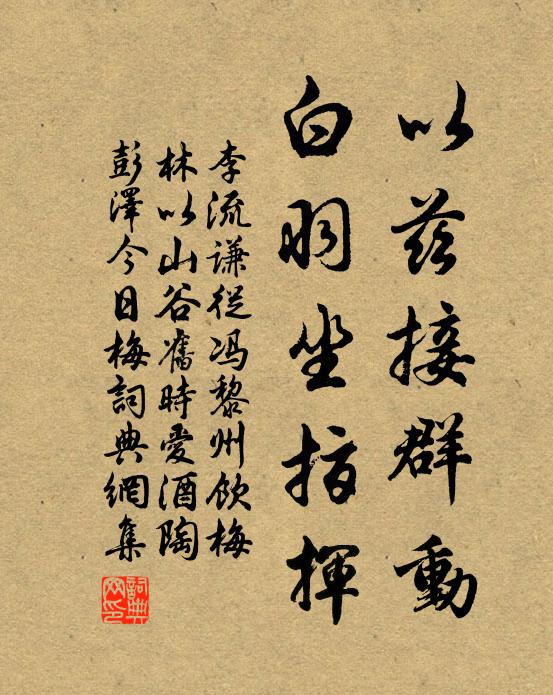 以茲接群動
白羽坐指揮
李流謙從冯黎州飲梅
林以山谷舊時愛酒陶
彭澤今日梅詞典網集
詞典
网印